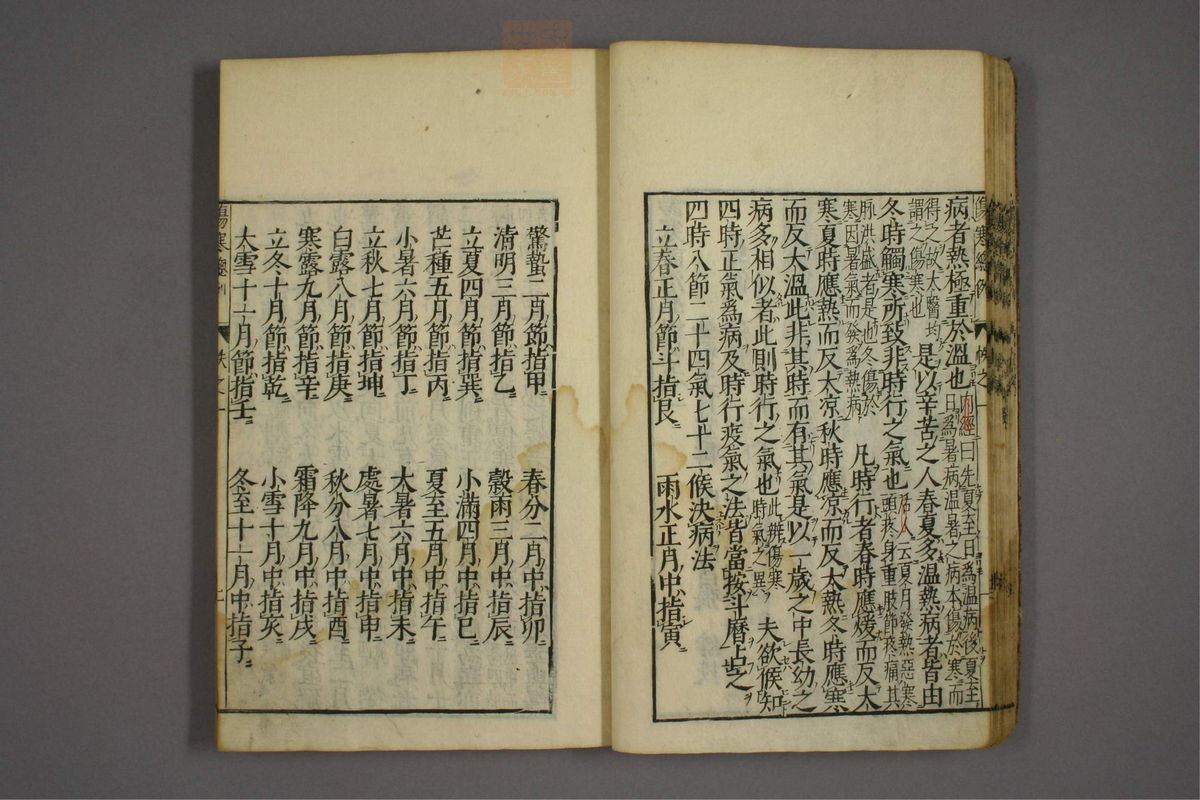 病者熱極重於溫也內經曰先夏至日爲溫病後夏至
日爲暑病溫暑之病本傷於寒而
得之故太醫均
謂之傷寒也
是以辛苦之人春夏多溫熱病者皆由
冬時觸寒所致非時行之氣也活人云夏月發熱惡寒
頭疼身重肢節疼痛其
脉洪盛者是也冬傷於
寒因暑氣而發爲熱病
凡時行者春時應煖而反大
寒夏時應熱而反大凉秋時應凉而反大熱冬時應寒
而反大溫此非其時而有其氣是以一歲之中長幼之
病多相似者此則時行之氣也此辨傷寒
時氣之異
夫欲候知
四時正氣爲病及時行疫氣之法皆當按斗曆占之
四時八節二十四氣七十二候決病法
立春正月節斗指艮　雨水正月中指寅
驚蟄二月節指甲　春分二月中指卯
清明三月節指乙　穀雨三月中指辰
立夏四月節指巽　小滿四月中指巳
芒種五月節指丙　夏至五月中指午
小暑六月節指丁　大暑六月中指未
立秋七月節指坤　處暑七月中指申
白露八月節指庚　秋分八月中指酉
寒露九月節指辛　霜降九月中指戌
立冬十月節指乾　小雪十月中指亥
大雪十一月節指壬　冬至十一月中指子
傷寒總例　卷之一